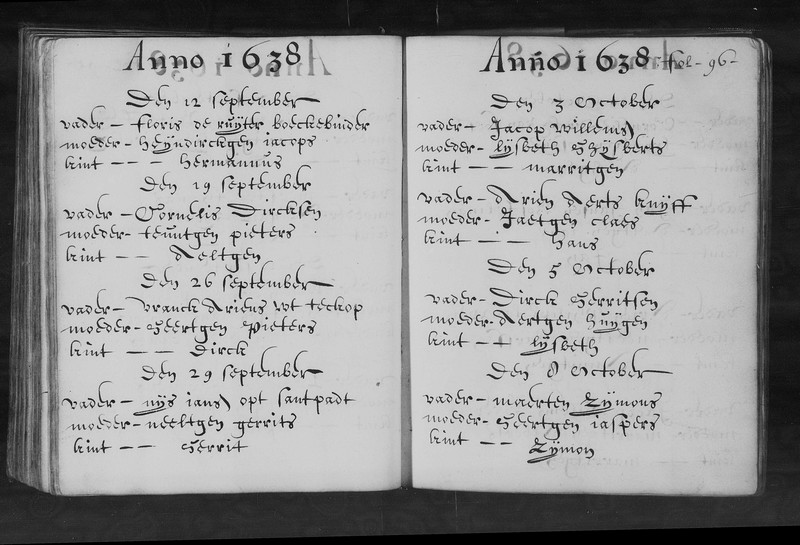 Anno 1638
Den 12 september
vader - floris de ruÿter boeckebinder
moeder - heÿndirckgen iacops
kint - - - hermannus
Den 19 september
vader - Cornelis Dircksen
moeder - teuntgen pieters
kint - - - Aeltgen
Den 26 september
vader - Vranck Ariens wt teckop
moeder - Geertgen Pieters
kint - - - Dirck
Den 29 september
vader - nijs ians opt santpadt
moeder - neeltgen gerrits
kint - - Gerrit
Anno 1638 fol - 96 -
Den 3 October
vader - Jacop willems
moeder - lÿsbeth Ghÿsberts
kint - - - marritgen
vader - Arien Aerts kuÿff
moeder - Jaetgen claes
kint - - - hans
Den 5 October
vader - Dirck Gerritsen
moeder - Aertgen huÿgen
kint - - lÿsbeth
Den 8 October
vader - maerten Zÿmons
moeder - Geertgen iaspers
kint - - Zÿmon